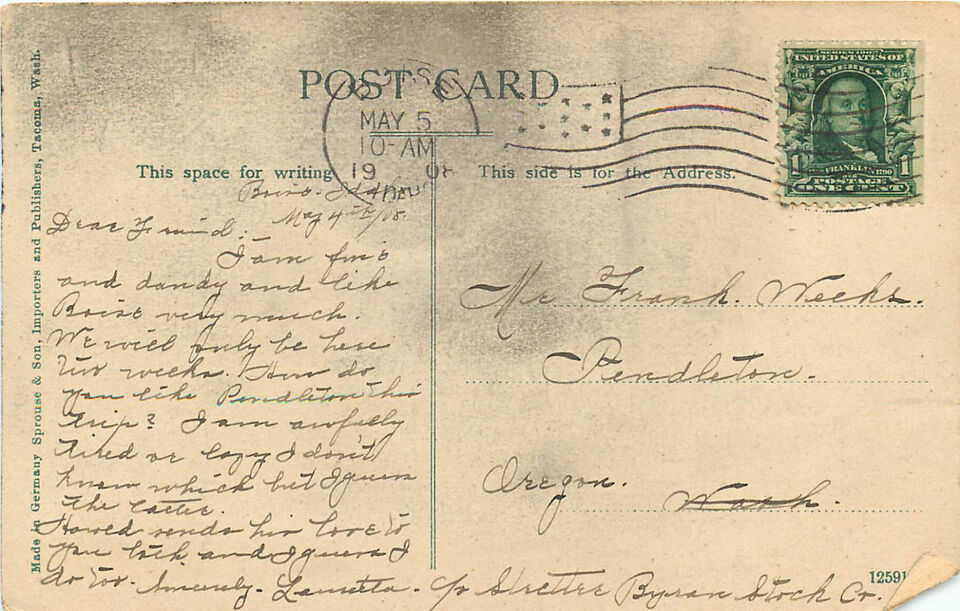 POST CARD
BOISE
MAY 5
10-AM
19 08
IDAHO
This space for writing
This side is for the Address.
SERIES 1902
UNITED STATES OF
AMERICA
1 FRANKLIN 1790 1
POSTAGE
ONE CENT
Made in Germany Sprouse & Son, Importers and Publishers, Tacoma, Wash.
Boise. Idaho
May 4th/08.
Dear Friend.
I am fine
and dandy and like
Boise very much.
We will only be here
two weeks. How do
you like Pendleton this
trip? I am awfully
tired or lazy I don't
know which but I guess
the latter.
sends her love to
you both and I guess I
do too. Sincerely. Lauretta c/o Byran Stock Co.
Mr Frank. Weeks.
Pendleton.
Oregon. Wash.
12591